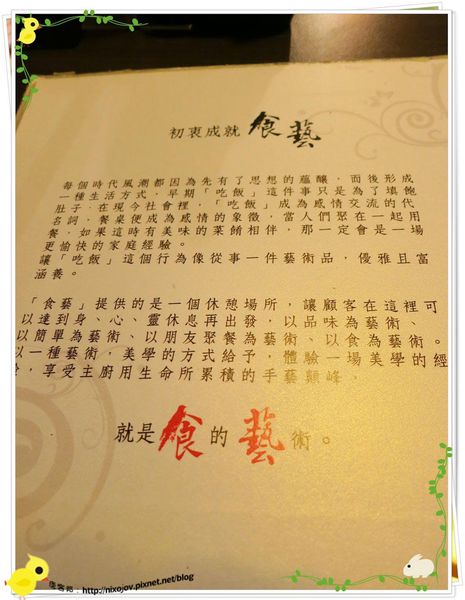 初衷成就 食藝
每個時代風潮都因為先有了思想的蘊釀，而後形成
一種生活方式，早期「吃飯」這件事只是為了填飽
肚子，在現今社會裡，「吃飯」成為感情交流的代
名詞，餐桌便成為感情的象徵，當人們聚在一起用
餐，如果這時有美味的菜餚相伴，那一定會是一場
更愉快的家庭經驗。
讓「吃飯」這個行為像從事一件藝術品，優雅且富
涵養。
「食藝」提供的是一個休憩場所，讓顧客在這裡可
以達到身、心、靈休息再出發，以品味為藝術、
以簡單為藝術、以朋友聚餐為藝術、以食為藝術。
以一種藝術，美學的方式給予，體驗一場美學的經
，享受主廚用生命所累積的手藝顛峰
就是食的藝術。
痞客邦：http://nixojov.pixnet.net/blog